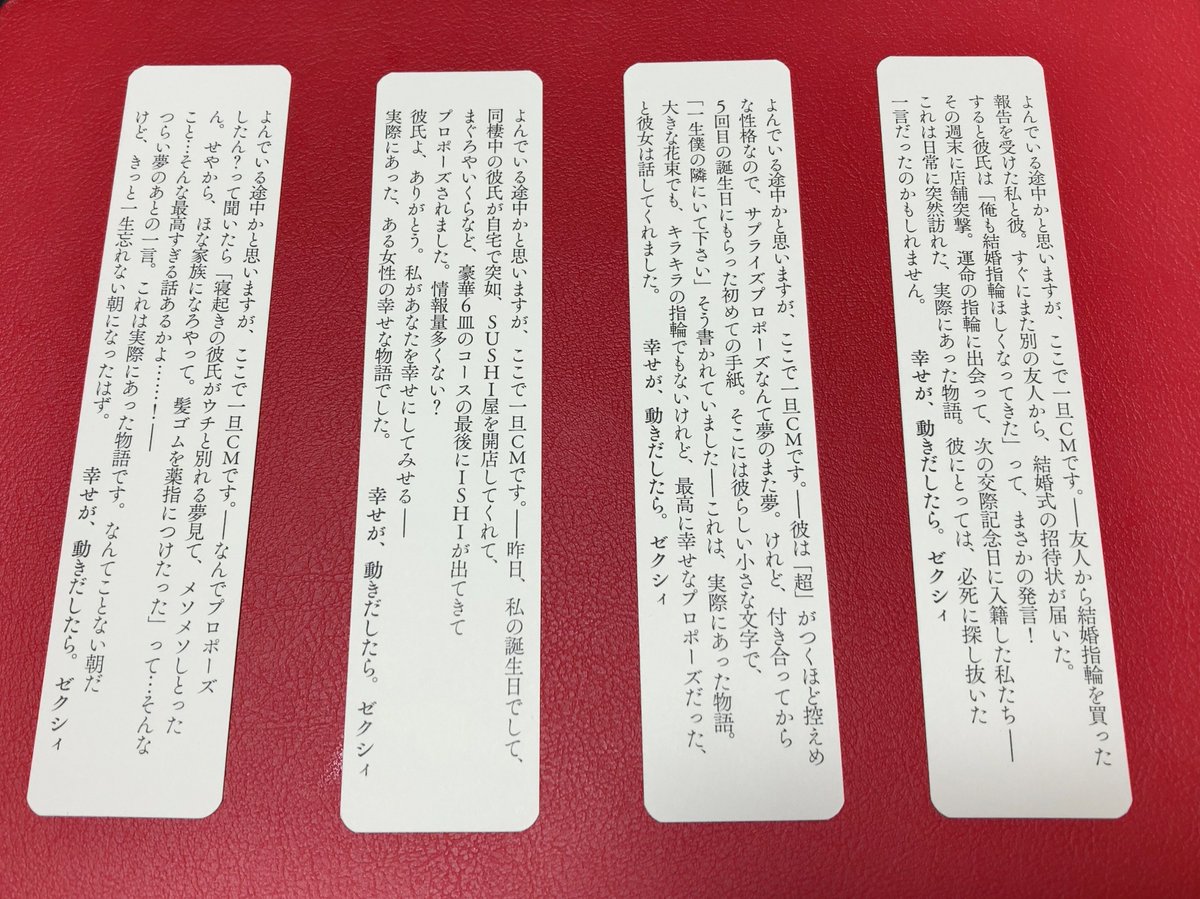 よんでいる途中かと思いますが、ここで一旦CMです。――友人から結婚指輪を買った
報告を受けた私と彼。すぐにまた別の友人から、結婚式の招待状が届いた。
すると彼氏は「俺も結婚指輪ほしくなってきた」って、まさかの発言！
その週末に店舗突撃。運命の指輪に出会って、次の交際記念日に入籍した私たち――
これは日常に突然訪れた、実際にあった物語。彼にとっては、必死に探し抜いた
一言だったのかもしれません。　幸せが、動きだしたら。ゼクシィ
よんでいる途中かと思いますが、ここで一旦CMです。――彼は「超」がつくほど控えめ
な性格なので、サプライズプロポーズなんて夢のまた夢。けれど、付き合ってから
5回目の誕生日にもらった初めての手紙。そこには彼らしい小さな文字で、
「一生僕の隣にいて下さい」そう書かれていました――これは、実際にあった物語。
大きな花束でも、キラキラの指輪でもないけれど、最高に幸せなプロポーズだった、
と彼女は話してくれました。　幸せが、動きだしたら。ゼクシィ
よんでいる途中かと思いますが、ここで一旦CMです。――昨日、私の誕生日でして、
同棲中の彼氏が自宅で突如、SUSHI屋を開店してくれて、
まぐろやいくらなど、豪華6皿のコースの最後にISHIが出てきて
プロポーズされました。情報量多くない？
彼氏よ、ありがとう。私があなたを幸せにしてみせる――
実際にあった、ある女性の幸せな物語でした。　幸せが、動きだしたら。ゼクシィ
よんでいる途中かと思いますが、ここで一旦CMです。――なんでプロポーズ
したん？って聞いたら「寝起きの彼氏がウチと別れる夢見て、メソメソしとった
ん。せやから、ほな家族になろやって。髪ゴムを薬指につけたった」って…そんな
こと…そんな最高すぎる話あるかよ……！――
つらい夢のあとの一言。これは実際にあった物語です。なんてことない朝だ
けど、きっと一生忘れない朝になったはず。　幸せが、動きだしたら。ゼクシィ